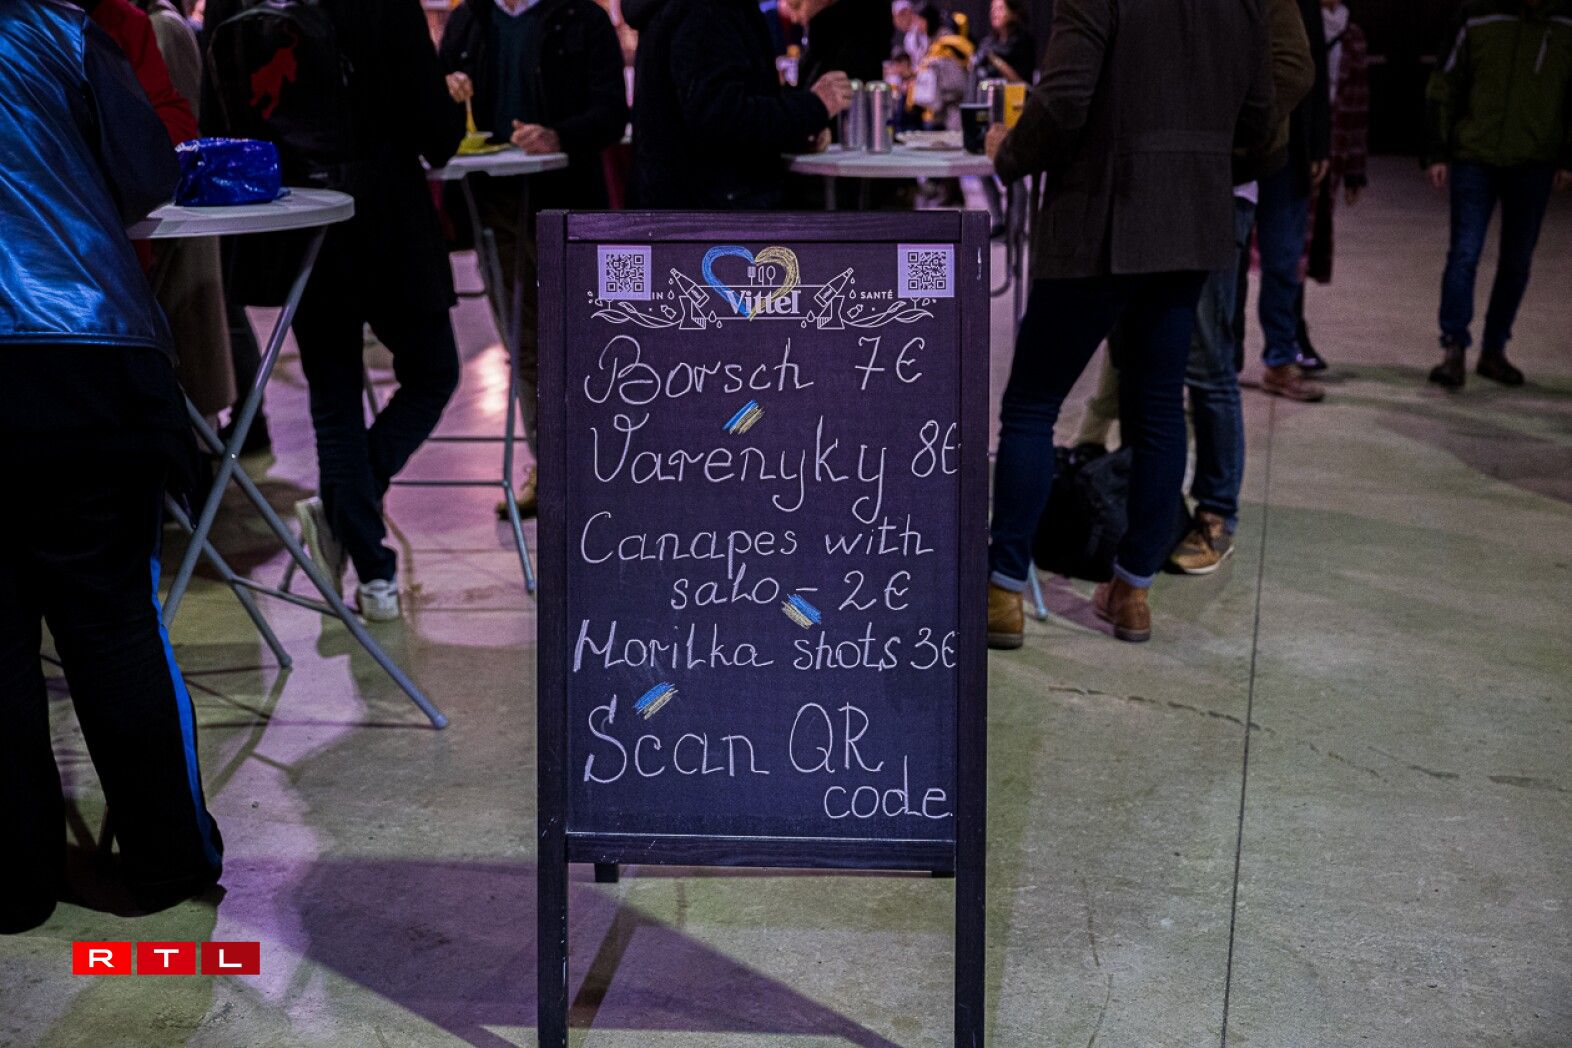 IN
SANTÉ
Vittel
Borsch 7€
Varenyky 8€
Canapes with
salo - 2€
Morilka shots 3€
Scan QR
code
RTL